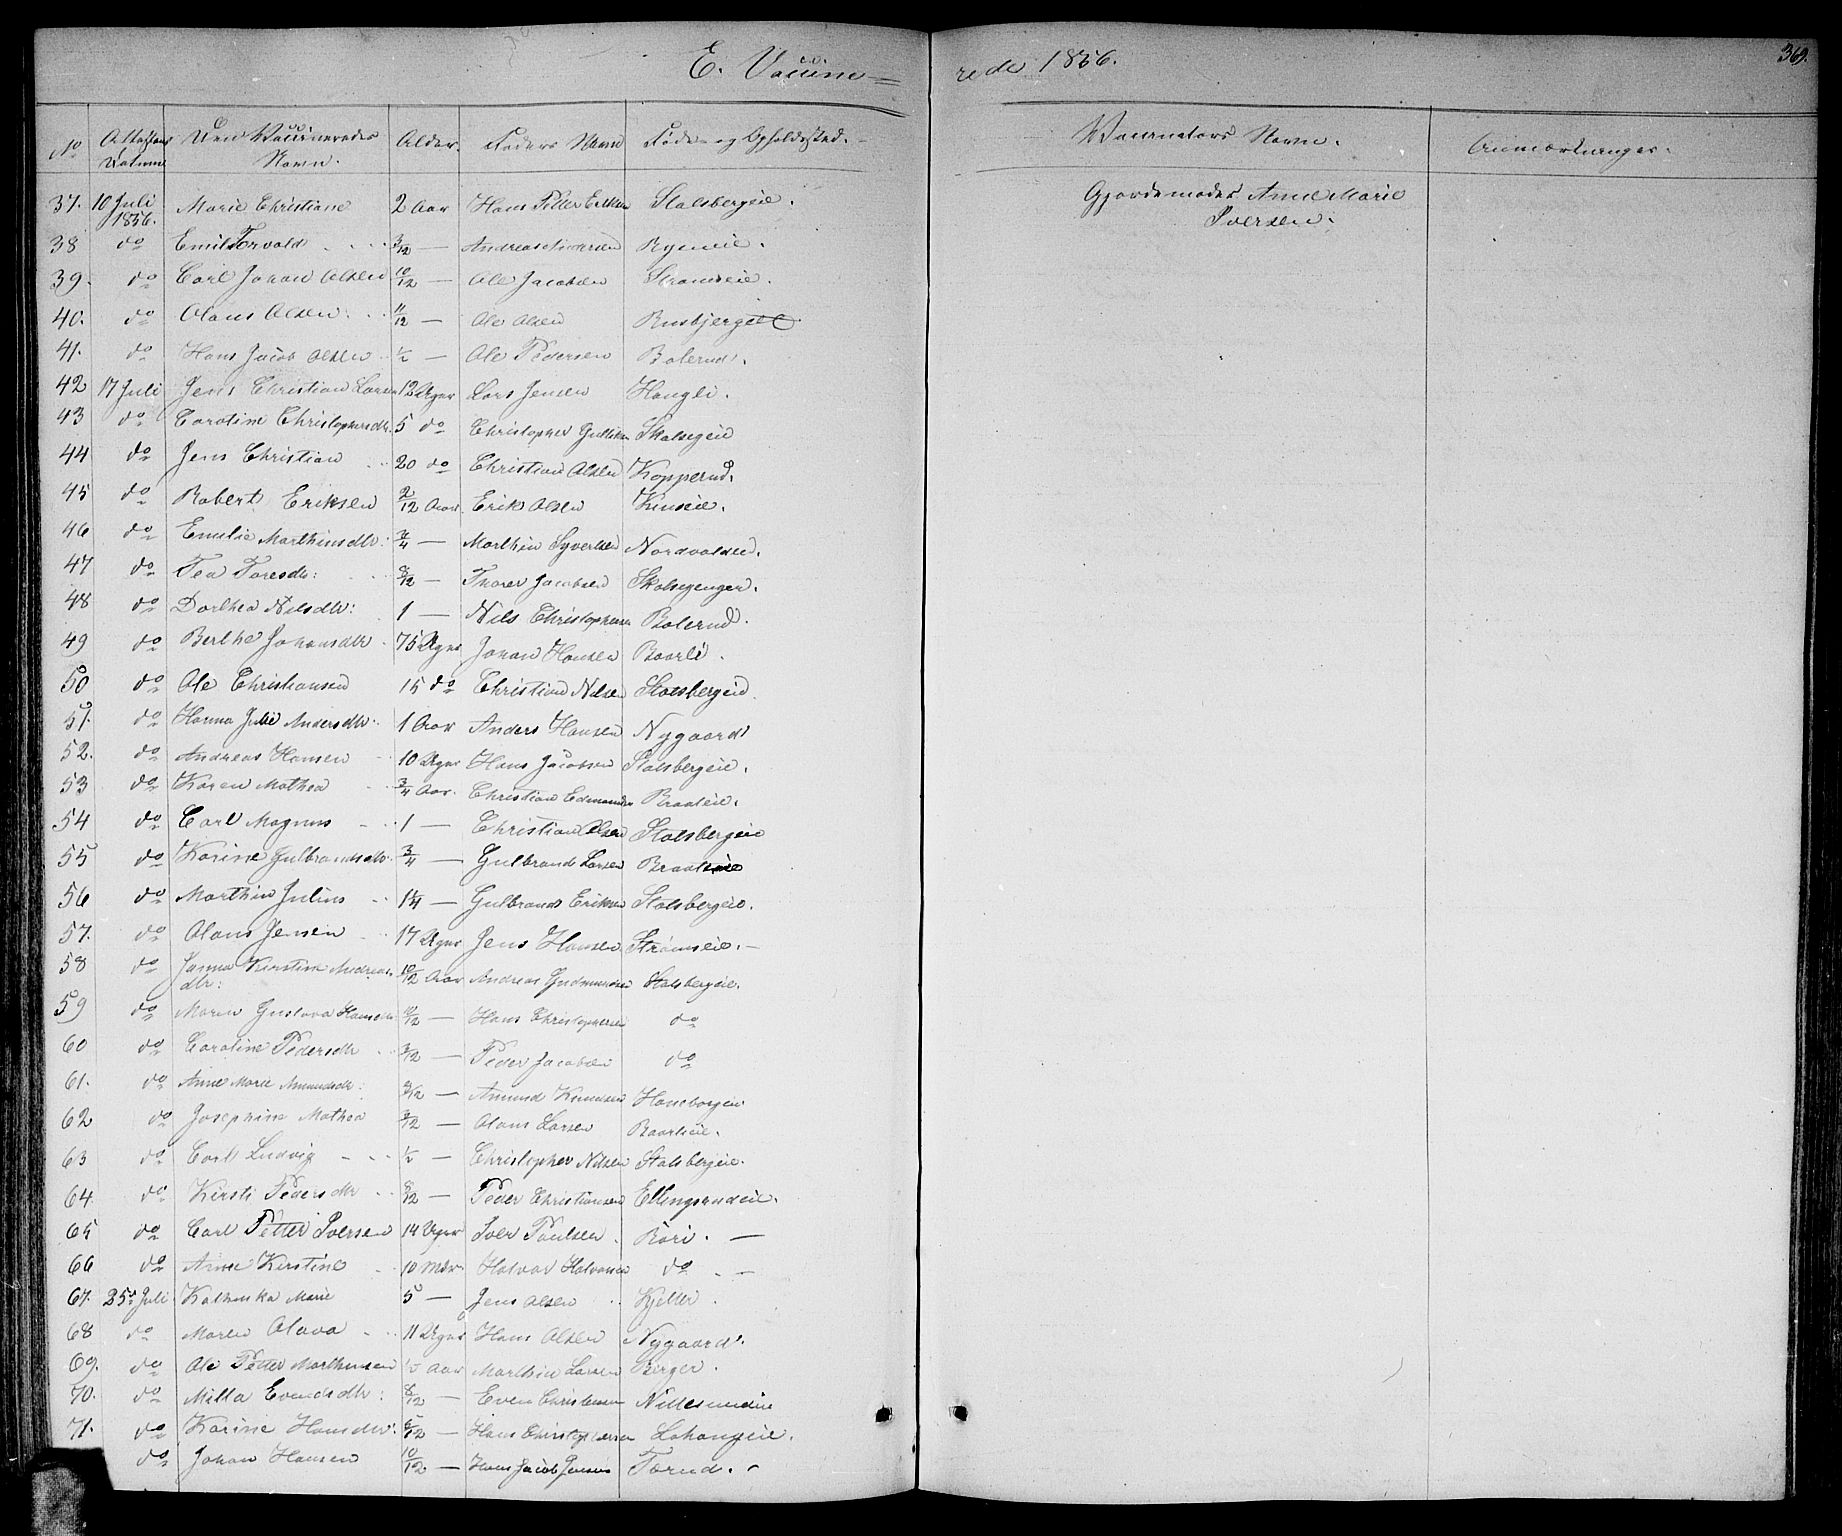 E. Vaccine=
rede 1856.
369.
No
Attestens Datum
Den Vaccineredes Navn.
Alder.
Faders Navn
Føde- og Opholdssted.
Vaccinators Navn.
Anmærkninger.
37. 10 Juli 1856. Marie Christiane 2 Aar Hans Petter Eriksen Stalsbergeie. Gjordemoder Anne Marie
Iversen.
38 do Emil Torvald 3/12 — Andreas Andersen Ryeneie.
39. do Carl Johan Olsen 10/12 — Ole Jacobsen Strømseie.
40. do Olaus Olsen 11/12 — Ole Olsen Rusbjerg
41. do Hans Jacob Olsen ½ — Ole Pedersen Bolerud.
42 17 Juli Jens Christian Larsen 12 Uger Lars Jensen Haugli.
43 do Caroline Christophersdtr. 5 do Christopher Gulliksen Skolsegeie
44 do Jens Christian 20 do Christian Olsen Kopperud.
45 do Robert Eriksen 2/12 Aar Erik Olsen
46 do Emilie Marthinsdtr. 3/4 — Marthin Syvertsen Nordvoldeie.
47 do Tea Toresdtr: 8/12 — Thorer Jacobsen Skolsegengen.
48 do Dorthea Nilsdtr: 1 — Nils Christophersen Bolerud.
49 do Berthe Johansdtr 75 Uger Johan Hansen Baarli.
50 do Ole Christiansen 15 do Christian Nilsen Stalsbergeie
51. do Hanna Julie Andersdtr. 1 Aar Anders Hansen Nygaard
52. do Andreas Hansen 10 Uger Hans Jacobsen Stalsbergeie.
53 do Karen Mathea 3/4 Aar. Christian Edmundsen Braateie.
54 do Carl Magnus 1 — Christian Olsen Stalsbergeie
55 do Karine Gulbrandsdtr. 3/4 — Gulbrand Larsen Braateie
56 do Marthin Julius 1¼ — Gulbrand Eriksen Stalsbergeie.
57. do Olaus Jensen 17 Uger Jens Hansen Strømseie. —
58 do Janna Kirstine Andreasdtr: 10/12 Aar Andreas Gudmundsen Stalsbergeie.
59 do Maren Gustava Hansdtr 10/12 — Hans Christophersen do
60 do Caroline Pedersdtr 3/12 — Peder Jacobsen do
61. do Anne Marie Amundsdtr: 9/12 — Amund Knudsen Haneborgeie
62 do Josephine Mathea 3/12 — Olaus Larsen Baarlieie.
63 do Carl Ludvig ½ — Christopher Nilsen Stalsbergeie.
64 do Kirsti Pedersdtr 8/12 — Peder Christiansen Ellingsrudeie.
65 do Carl Petter Iversen 14 Uger Iver Poulsen Röri. —
66 do Anne Kirstine 10 Mdr. Halvor Halvorsen do —
67. 25de Juli Kathinka Marie 5 — Jens Olsen Kjeller.
68 do Maren Olava 11 Uger Hans Olsen Nygaard.
69. do Ole Petter Marthinsen ½ Aar Marthin Larsen Berger.
70. do Milla Evensdtr: 8/12 — Even Christensen Nittesrudeie
71. do Karine Hansdtr: 5/12 — Hans Christophersen Lohangeie.
do Johan Hansen 10/12 — Hans Jacob Jensen Tærud.